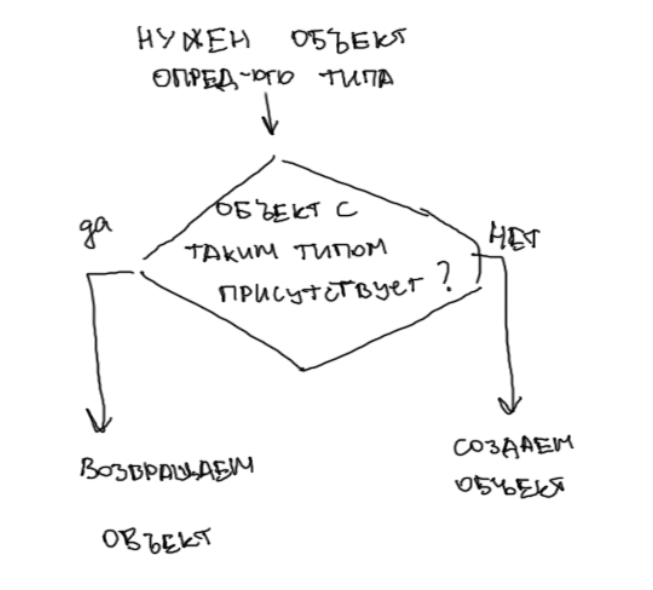 НУЖЕН ОБЪЕКТ
ОПРЕД-ОГО ТИПА
ОБЪЕКТ С
ТАКИМ ТИПОМ
ПРИСУТСТВУЕТ?
да
НЕТ
ВОЗВРАЩАЕМ
ОБЪЕКТ
СОЗДАЕМ
ОБЪЕКТ